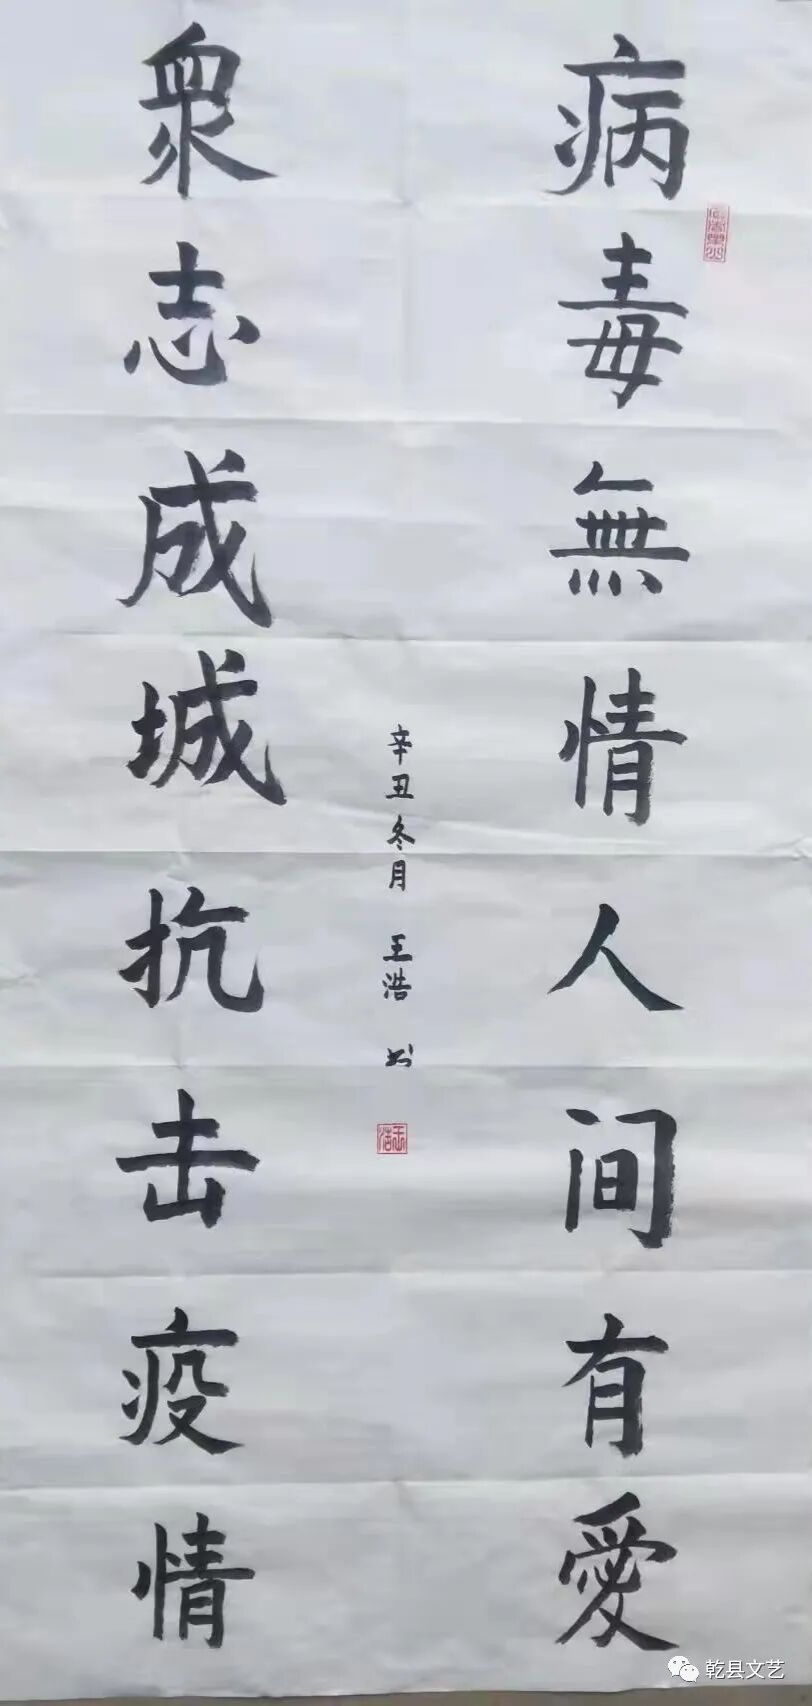 病毒無情人间有愛
衆志成城抗击疫情
辛丑冬月 王浩
王浩
乾县文艺